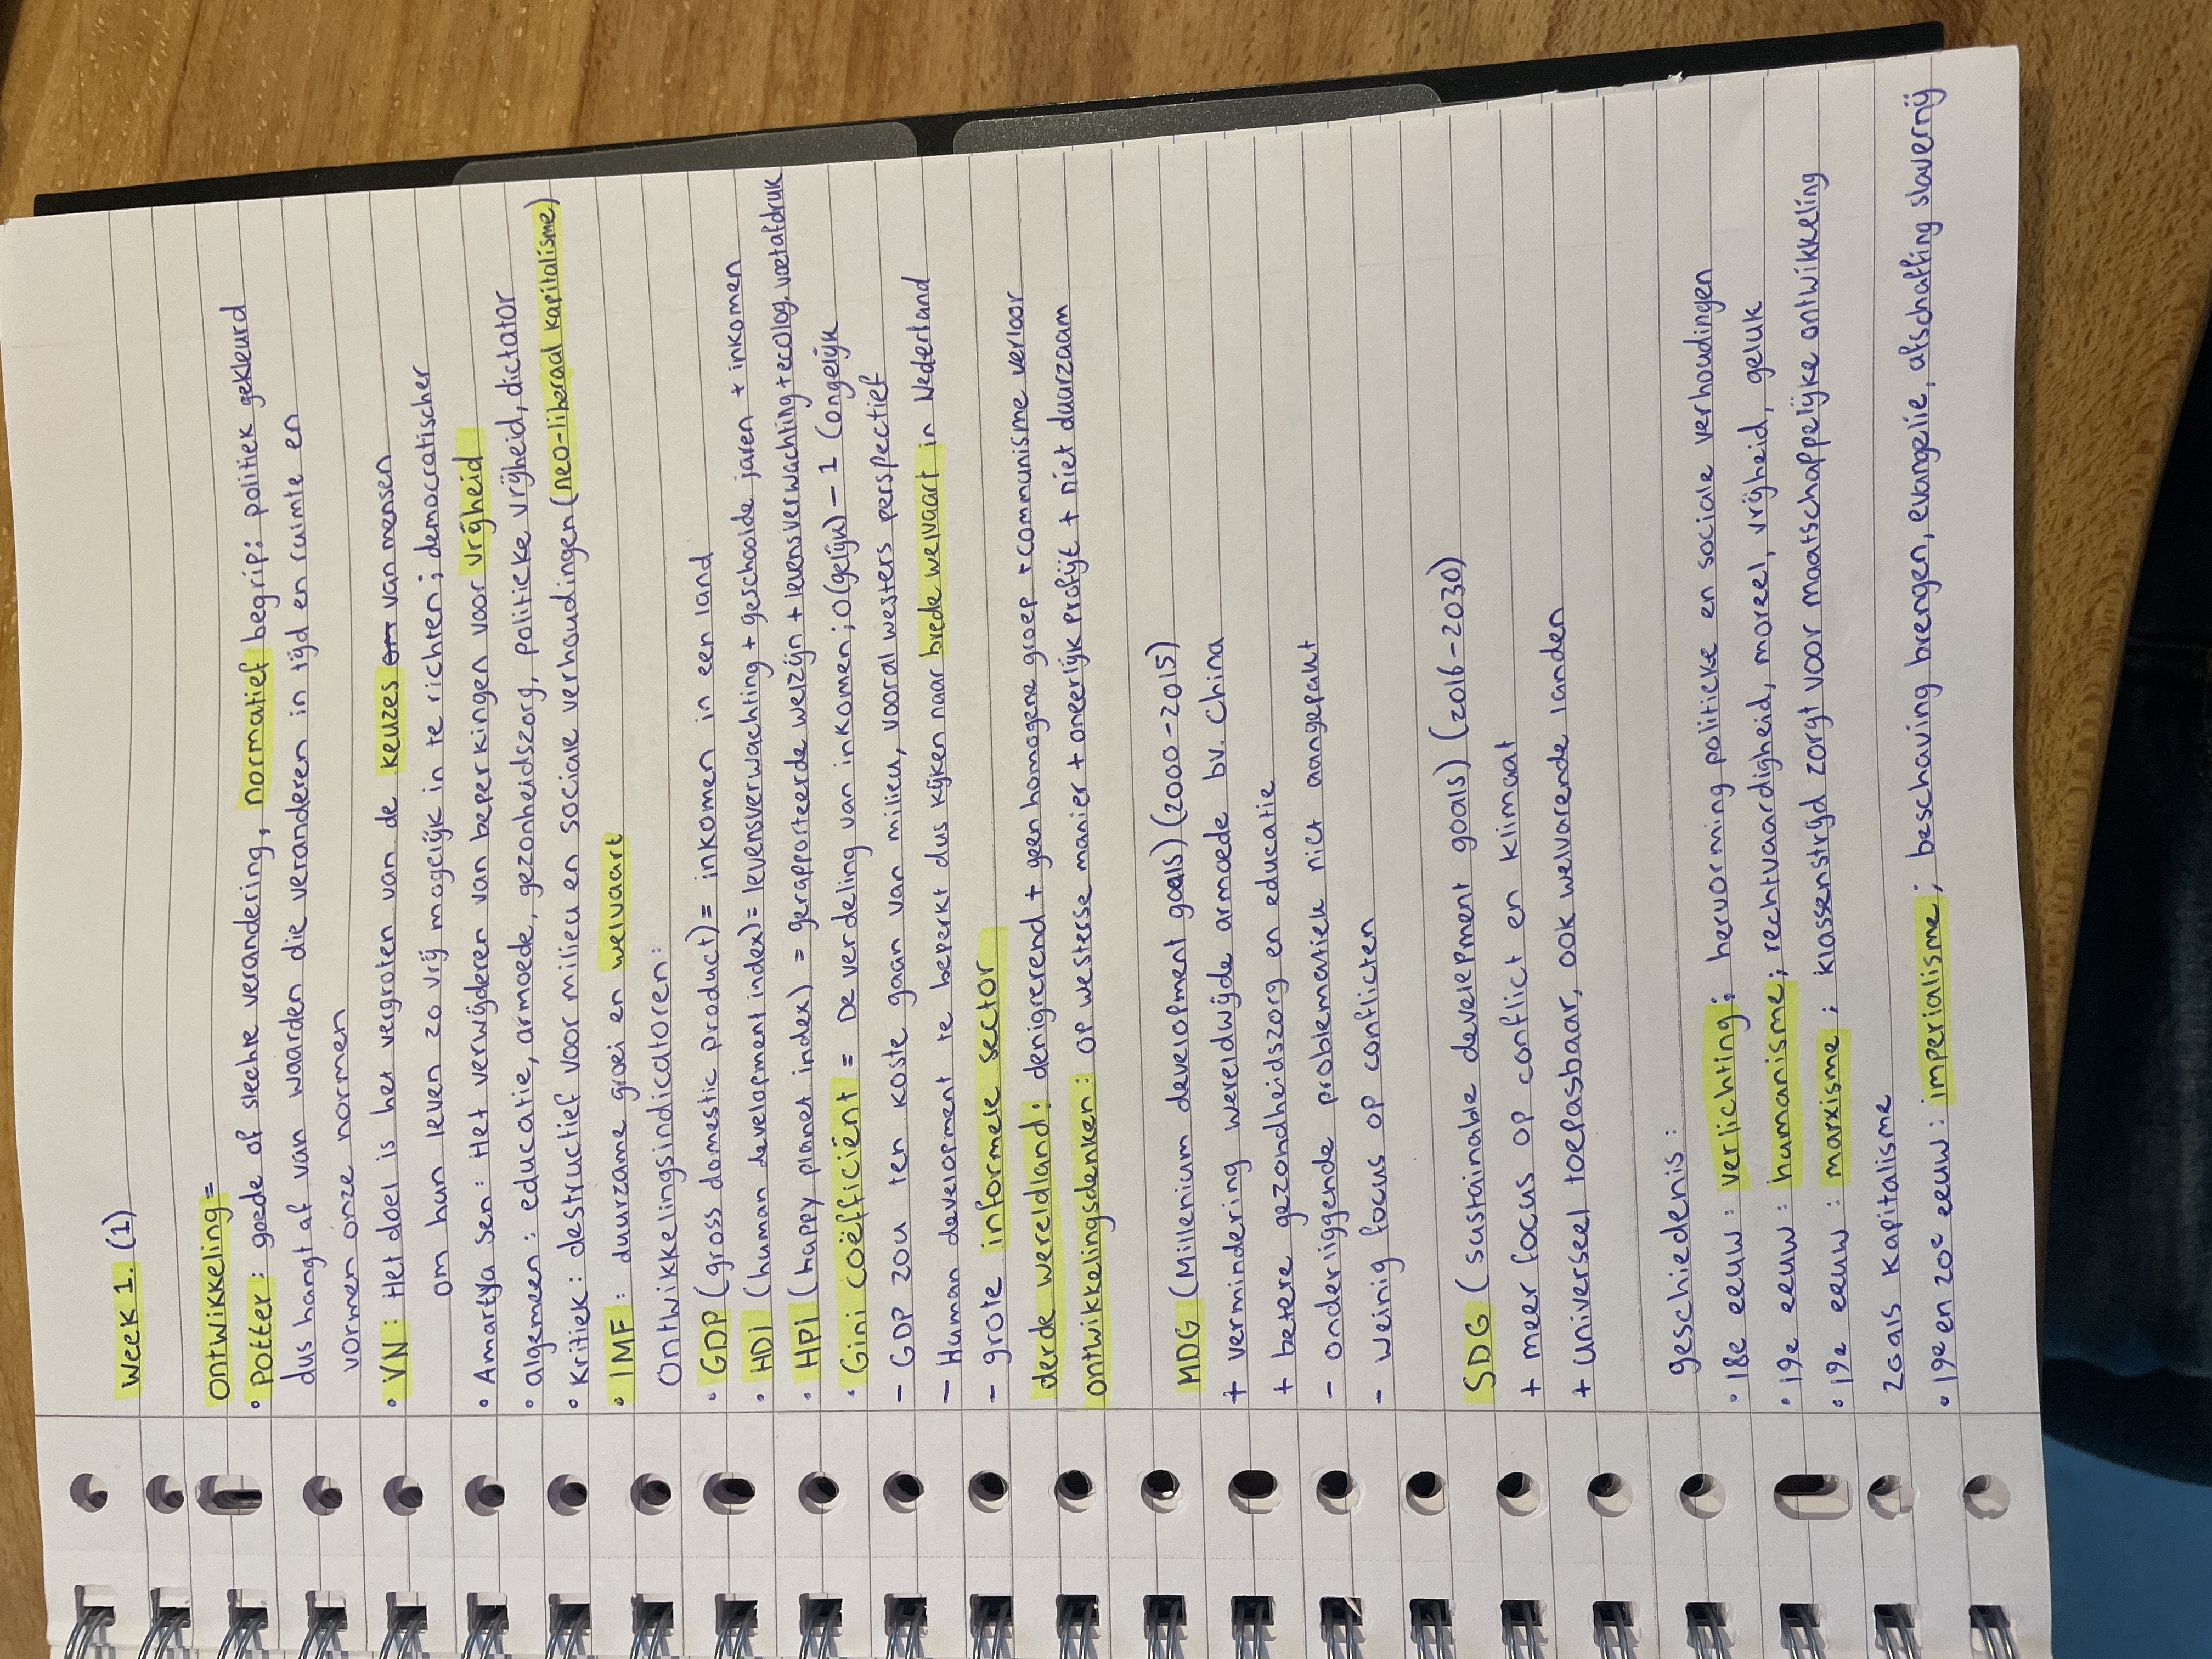 Week 1. (1)
ontwikkeling=
• Potter: goede of slechte verandering, normatief begrip: politiek gekleurd
dus hangt af van waarden die veranderen in tijd en ruimte en
vormen onze normen
• VN: Het doel is het vergroten van de keuzes om van mensen
om hun leven zo vrij mogelijk in te richten; democratischer
• Amartya Sen: Het verwijderen van beperkingen voor vrijheid
• algemeen: educatie, armoede, gezonheidszorg, politieke vrijheid, dictator
• Kritiek: destructief voor milieu en sociale verhoudingen (neo-liberaal kapitalisme)
• IMF: duurzame groei en welvaart
Ontwikkelingsindicatoren:
• GDP (gross domestic product)= inkomen in een land
• HDI (human development index)= levensverwachting + geschoolde jaren + inkomen
• HPI (happy planet index) = gerapporteerde welzijn + levensverwachting + ecolog. voetafdruk
• Gini coëfficiënt = De verdeling van inkomen; 0(gelijk) – 1 (ongelijk
- GDP zou ten koste gaan van milieu, vooral westers perspectief
- Human development te beperkt dus kijken naar brede welvaart in Nederland
- grote informele sector
derde wereldland: denigrerend + geen homogene groep + communisme verloor
ontwikkelingsdenken: op westerse manier + oneerlijk profijt + niet duurzaam
MDG (Millenium development goals) (2000-2015)
+ vermindering wereldwijde armoede bv. China
+ betere gezondheidszorg en educatie
- onderliggende problematiek niet aangepakt
- weinig focus op conflicten
SDG (sustainable develepment goals) (2016-2030)
+ meer focus op conflict en klimaat
+ universeel toepasbaar, ook welvarende landen
geschiedenis:
• 18e eeuw: verlichting; hervorming politieke en sociale verhoudingen
• 19e eeuw: humanisme; rechtvaardigheid, moreel, vrijheid, geluk
• 19e eeuw: marxisme; klassenstrijd zorgt voor maatschappelijke ontwikkeling
zoals kapitalisme
• 19e en 20e eeuw: imperialisme; beschaving brengen, evangelie, afschaffing slavernij